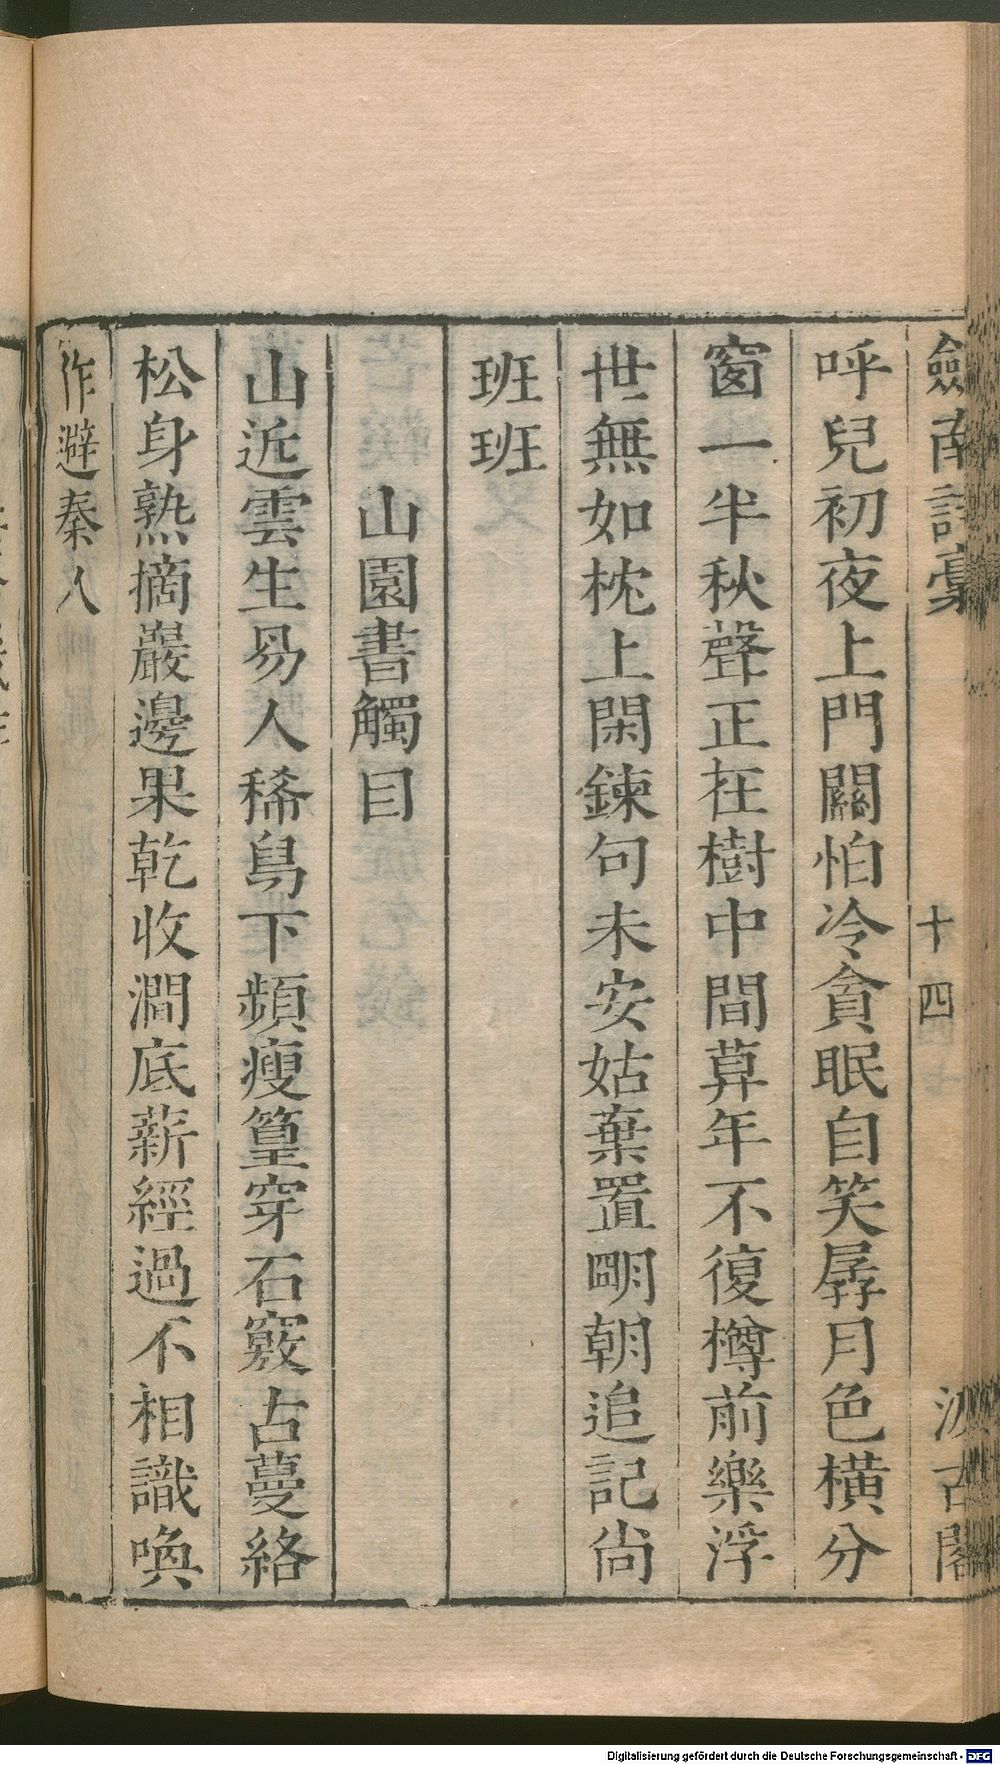 劒南詩稾
十四
汲古閣
呼兒初夜上門關怕冷貪眠自笑孱月色橫分
窗一半秋聲正在樹中間萛年不復樽前樂浮
世無如枕上閑鍊句未安姑棄置明朝追記尙
班班
山園書觸目
山近雲生易人稀鳥下頻瘦篁穿石竅古蔓絡
松身熟摘巖邊果乾收澗底薪經過不相識喚
作避秦人
Digitalisierung gefördert durch die Deutsche Forschungsgemeinschaft - DFG